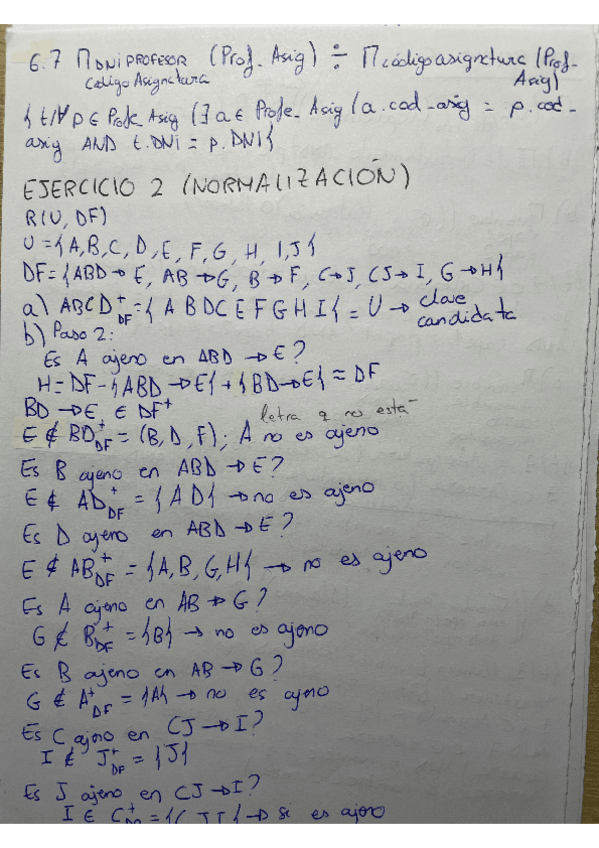 6.7 Π DNI PROFESOR (Prof_Asig) ÷ Π código asignatura (Prof_
Codigo Asignatura Asig)
{ t/∀ p ∈ Profe_Asig (∃ a ∈ Profe_Asig (a.cod_asig = p.cod_
asig AND t.DNI = p.DNI}
EJERCICIO 2 (NORMALIZACIÓN)
R(U, DF)
U = {A,B,C,D,E,F,G,H,I,J}
DF = {ABD → E, AB → G, B → F, C → J, CJ → I, G → H}
a) ABCD⁺DF = {A B D C E F G H I} = U → clave
candidata
b) Paso 2:
Es A ajeno en ABD → E?
H = DF - {ABD → E} + {BD → E} ≈ DF
BD → E ∈ DF⁺
letra q no está
E ∉ BD⁺DF = (B, D, F); A no es ajeno
Es B ajeno en ABD → E?
E ∉ AD⁺DF = {AD} → no es ajeno
Es D ajeno en ABD → E?
E ∉ AB⁺DF = {A,B,G,H} → no es ajeno
Es A ajeno en AB → G?
G ∉ B⁺DF = {B} → no es ajeno
Es B ajeno en AB → G?
G ∉ A⁺DF = {A} → no es ajeno
Es C ajeno en CJ → I?
I ∉ J⁺DF = {J}
Es J ajeno en CJ → I?
I ∈ C⁺DF = {C J I} → si es ajeno